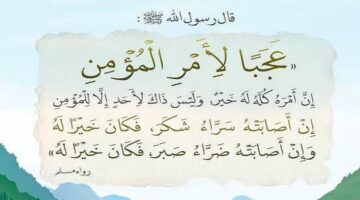 قال رسول الله ﷺ :
«عَجَبًا لِأَمْرِ الْمُؤْمِنِ
إِنَّ أَمْرَهُ كُلَّهُ لَهُ خَيْرٌ، وَلَيْسَ ذَاكَ لِأَحَدٍ إِلَّا لِلْمُؤْمِنِ
إِنْ أَصَابَتْهُ سَرَّاءُ شَكَرَ، فَكَانَ خَيْرًا لَهُ
وَإِنْ أَصَابَتْهُ ضَرَّاءُ صَبَرَ، فَكَانَ خَيْرًا لَهُ»
رواه مسلم